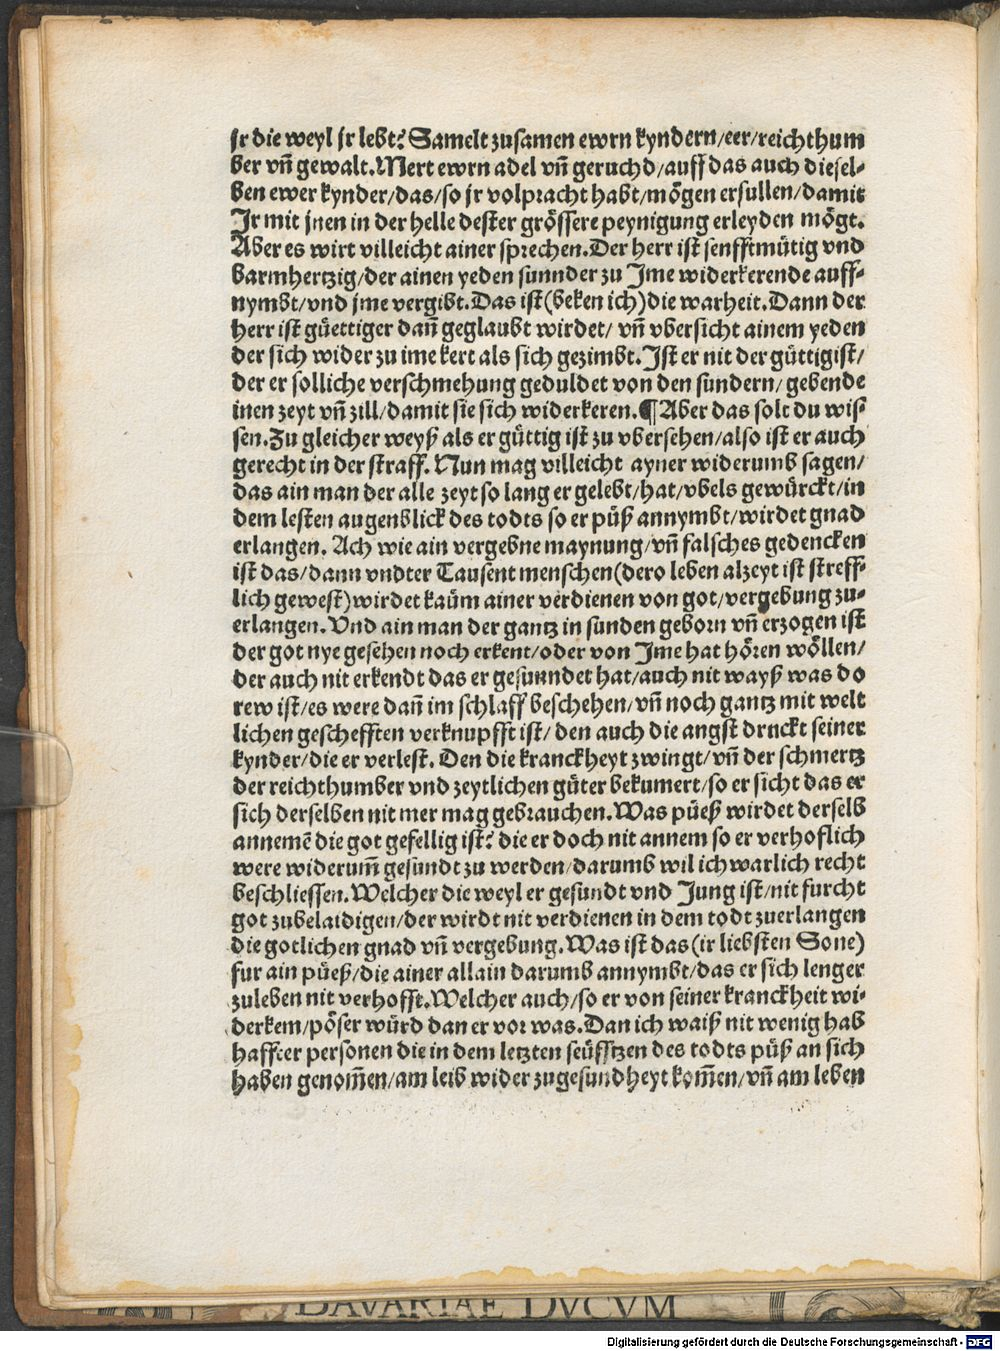 jr die weyl jr lebt? Samelt zusamen ewrn kyndern/eer/reichthum
ber vñ gewalt. Mert ewrn adel vñ geruchd/auff das auch diesel-
ben ewer kynder/das/so jr volpracht habt/mögen erfullen/damit
Ir mit jnen in der helle dester grössere peynigung erleyden mögt.
Aber es wirt villeicht ainer sprechen. Der herr ist senfftmütig vnd
barmhertzig/der ainen yeden sunnder zu Ime widerkerende auff-
nymbt/vnd jme vergibt. Das ist (beken ich) die warheit. Dann der
herr ist güettiger dañ geglaubt wirdet/ vñ vbersicht ainem yeden
der sich wider zu ime kert als sich gezimbt. Ist er nit der güttigist/
der er solliche verschmehung geduldet von den sundern/ gebende
inen zeyt vñ zill/damit sie sich widerkeren. ¶ Aber das solt du wis-
sen. Zu gleicher weyß als er güttig ist zu vbersehen/also ist er auch
gerecht in der straff. Nun mag villeicht ayner widerumb sagen/
das ain man der alle zeyt so lang er gelebt/hat/vbels gewürckt/in
dem lesten augenblick des todts so er püß annymbt/wirdet gnad
erlangen. Ach wie ain vergebne maynung/vñ falsches gedencken
ist das/dann vndter Tausent menschen (dero leben alzeyt ist streff-
lich gewest) wirdet kaüm ainer verdienen von got/vergebung zu-
erlangen. Vnd ain man der gantz in sunden geborn vñ erzogen ist
der got nye gesehen noch erkent/oder von Ime hat hören wöllen/
der auch nit erkendt das er gesunndet hat/auch nit wayß was do
rew ist/es were dañ im schlaff beschehen/vñ noch gantz mit welt
lichen geschefften verknupfft ist/ den auch die angst druckt seiner
kynder/die er verlest. Den die kranckheyt zwingt/vñ der schmertz
der reichthumber vnd zeytlichen güter bekumert/so er sicht das er
sich derselben nit mer mag gebrauchen. Was püeß wirdet derselb
annemē die got gefellig ist? die er doch nit annem so er verhoflich
were widerum̄ gesundt zu werden/darumb wil ich warlich recht
beschliessen. Welcher die weyl er gesundt vnd Jung ist/nit furcht
got zubelaidigen/der wirdt nit verdienen in dem todt zuerlangen
die gotlichen gnad vñ vergebung. Was ist das (ir liebsten Sone)
fur ain püeß/die ainer allain darumb annymbt/das er sich lenger
zuleben nit verhofft. Welcher auch/so er von seiner kranckheit wi-
derkem/pöser würd dan er vor was. Dan ich waiß nit wenig hab
haffter personen die in dem letzten seüfftzen des todts püß an sich
haben genom̄en/am leib wider zugesundheyt kom̄en/vñ am leben
BAVARIAE DVCVM
Digitalisierung gefördert durch die Deutsche Forschungsgemeinschaft - DFG